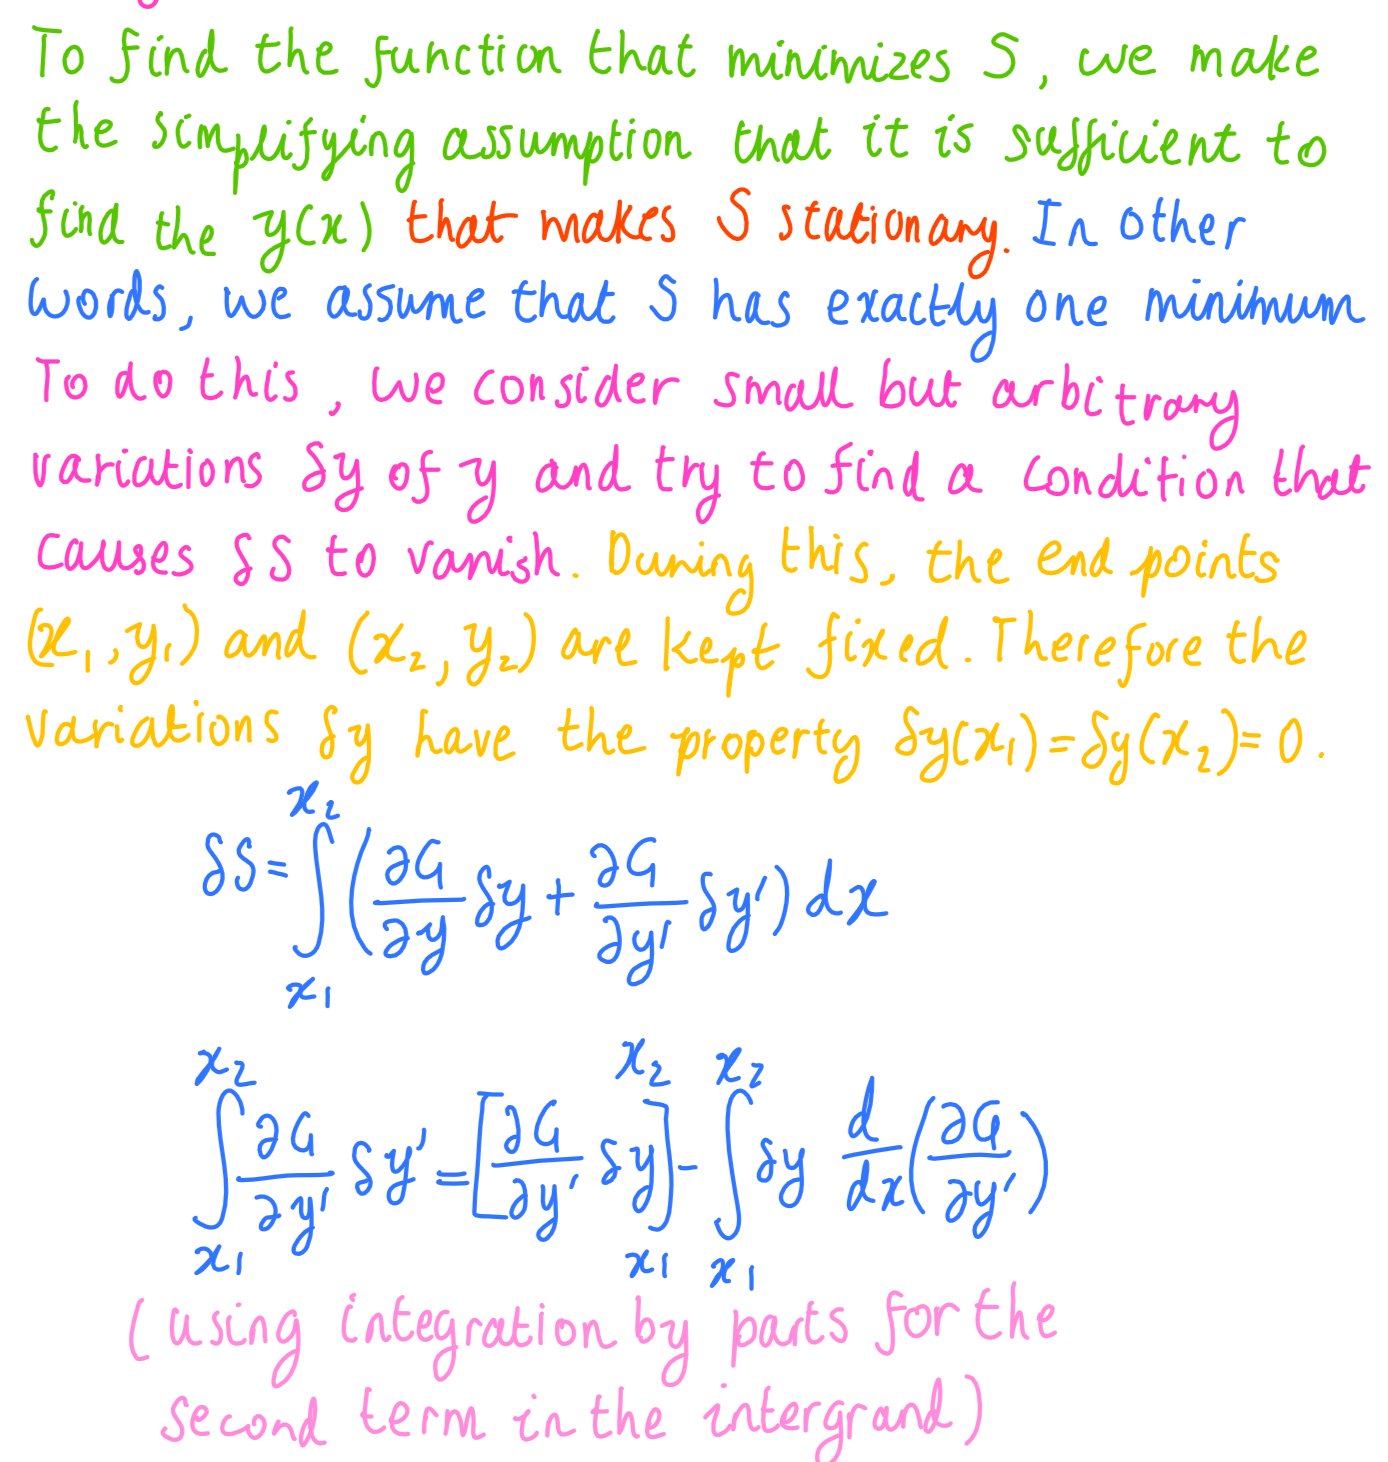 To find the function that minimizes S, we make
the simplifying assumption that it is sufficient to
find the y(x) that makes S stationary. In other
words, we assume that S has exactly one minimum
To do this, we consider small but arbitrary
variations δy of y and try to find a condition that
causes δS to vanish. During this, the end points
(x₁, y₁) and (x₂, y₂) are kept fixed. Therefore the
variations δy have the property δy(x₁) = δy(x₂) = 0.
δS = ∫_{x₁}^{x₂} (∂G/∂y δy + ∂G/∂y' δy') dx
∫_{x₁}^{x₂} ∂G/∂y' δy' = [∂G/∂y' δy]_{x₁}^{x₂} - ∫_{x₁}^{x₂} δy d/dx (∂G/∂y')
(using integration by parts for the
second term in the intergrand)